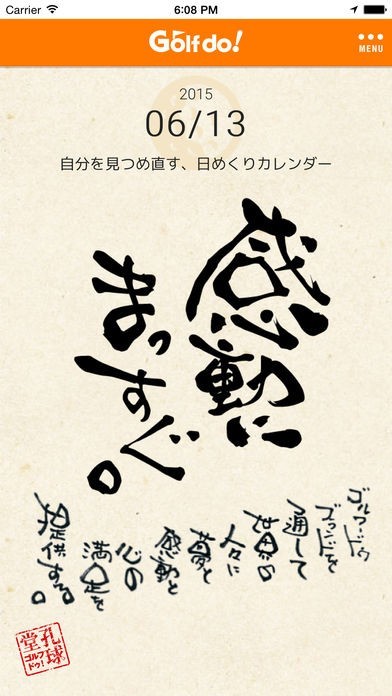 Carrier 6:08 PM
Golf do!
MENU
2015
06/13
自分を見つめ直す、日めくりカレンダー
感動に
まっすぐ。
ゴルフ・ドゥ
ブランドを
通して
世界の
人々に
夢と
感動と
心の
満足を
提供する。
孔球堂
ゴルフドゥ!